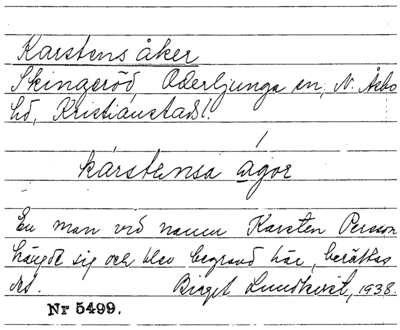 Karstens åker
Skingeröd, Oderljunga sn, N. Åsbo
hd, Kristianstads l.
kárstensa ågor
En man vid namn Karsten Persson
hängde sig och blev begravd här, berättas
det. Birget Lundkvist, 1938.
Nr 5499.